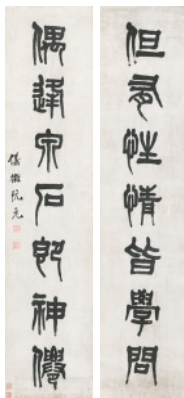 但多性情皆學問
偶逢泉石即神僊
儀徵阮元